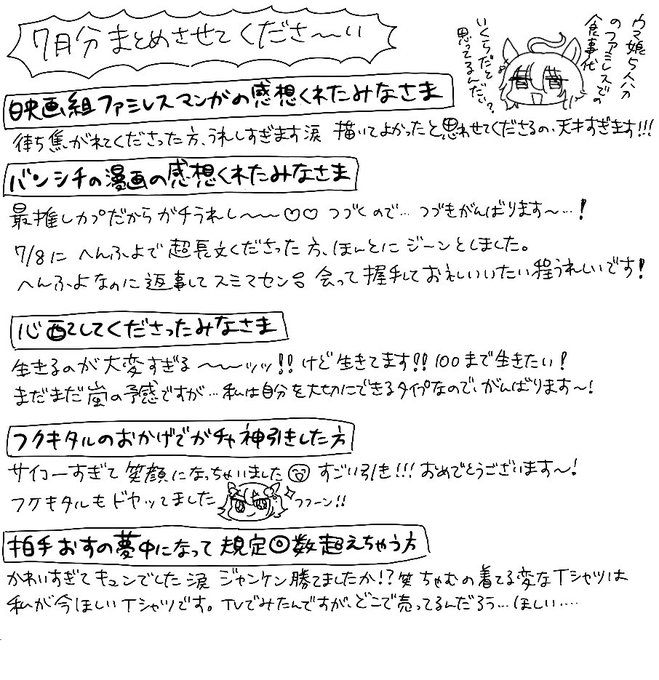 7月分まとめさせてくださ〜〜い
ウマ娘5人分
のファミレスでの
食事代
いくらだと
思ってるんだい?
映画組ファミレスマンガの感想くれたみなさま
待ち焦がれてくださった方、うれしすぎます涙 描いてよかったと思わせてくださるの、天才すぎます!!!
バンシチの漫画の感想くれたみなさま
最推しカプだからガチうれし〜〜〜♡♡ つづくので… つづきがんばります〜…!
7/8に へんふよで 超長文くださった方、ほんとに ジーンとしました。
へんふよなのに返事してスミマセン 会って握手しておれいいいたい程うれしいです!
心配してくださったみなさま
生きるのが大変すぎる〜〜〜ッッ!! けど生きてます!! 100まで生きたい!
まだまだ嵐の予感ですが…私は自分を大切にできるタイプなので、がんばります〜!
フクキタルのおかげでガチャ神引きした方
サイコーすぎて笑顔になっちゃいました すごい引き!!! おめでとうございます〜!
フクキタルもドヤッてました フフーン!!
拍手おすの夢中になって規定回数超えちゃう方
かわいすぎてキュンでした涙 ジャンケン勝てましたか!?笑 ちゃむの着てる変なTシャツは
私が今ほしいTシャツです。TVでみたんですが、どこで売ってるんだろう…ほしい‥‥